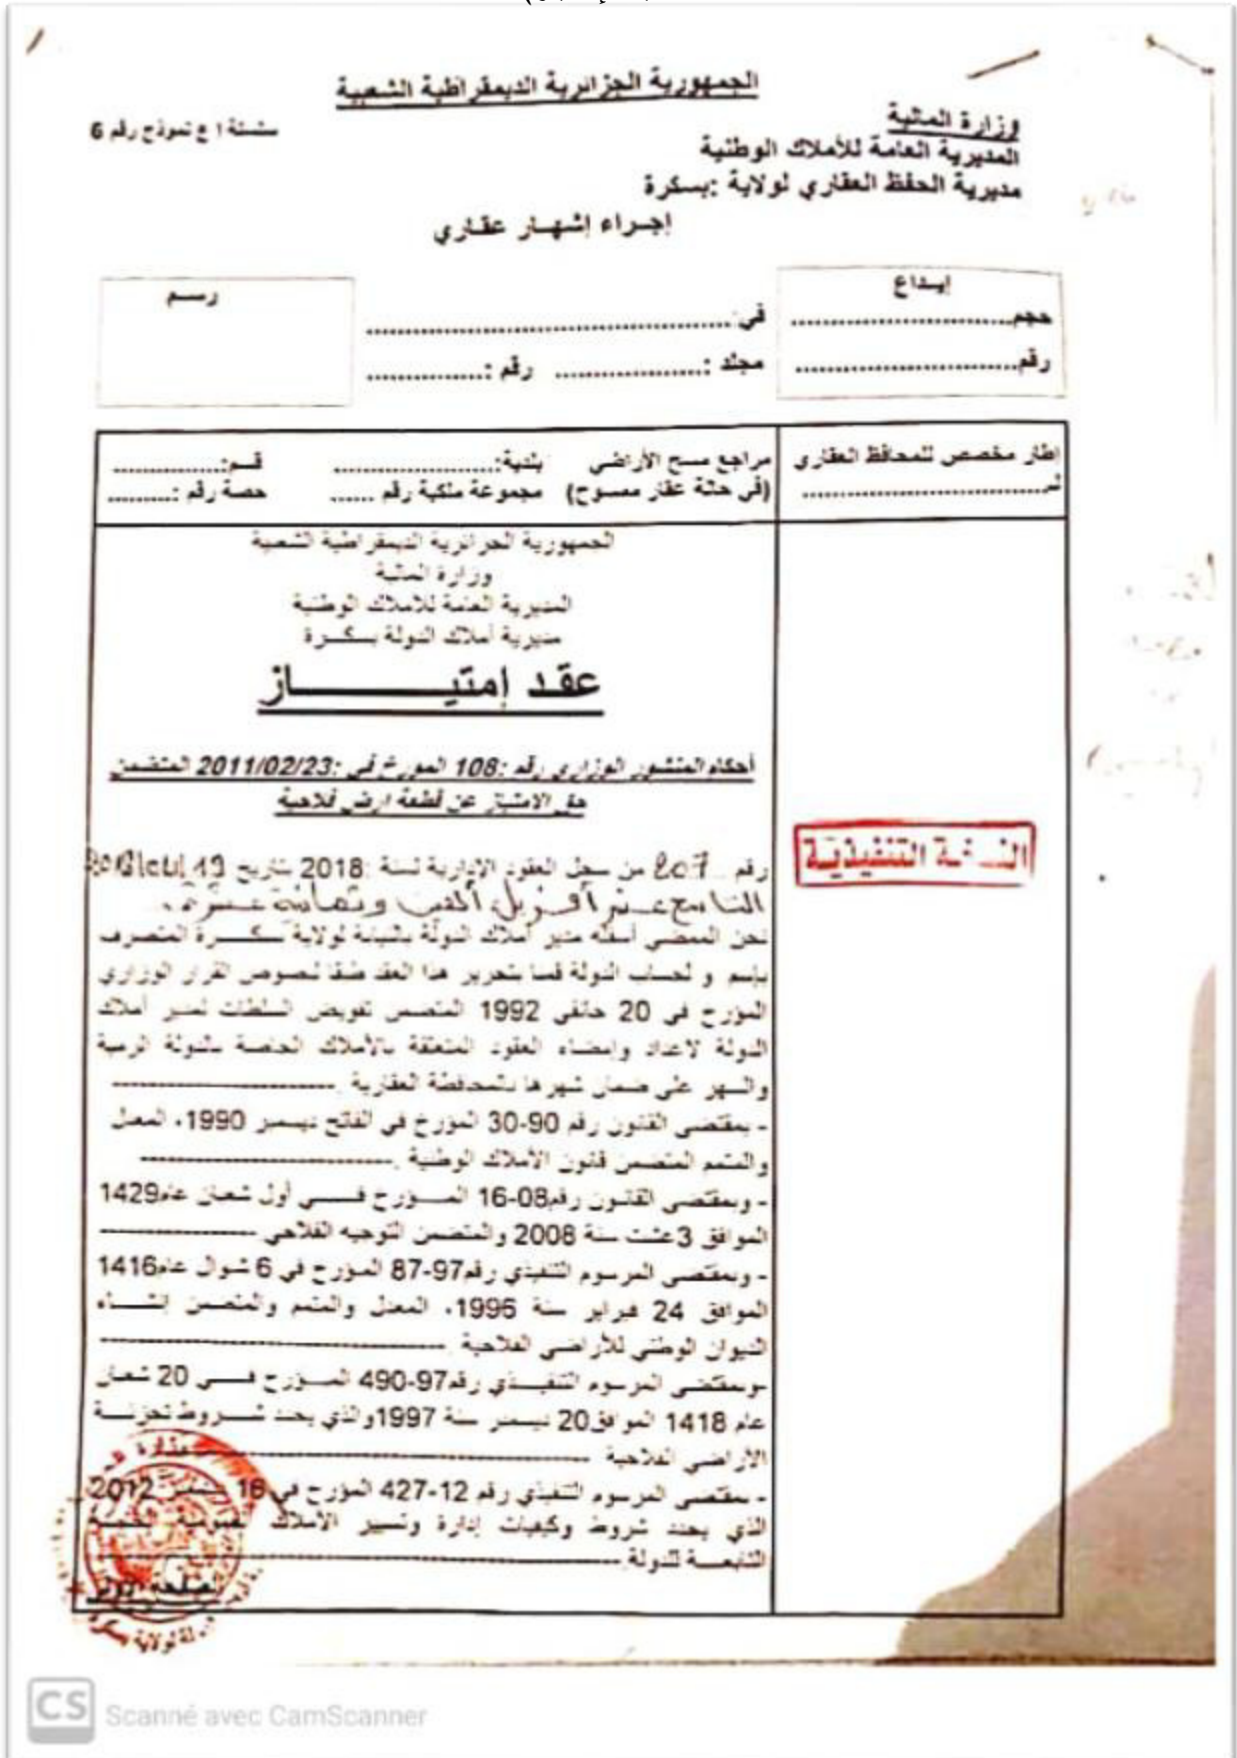 الجمهورية الجزائرية الديمقراطية الشعبية
وزارة المالية
سلسلة ا ع نموذج رقم 6
المديرية العامة للأملاك الوطنية
مديرية الحفظ العقاري لولاية :بسكرة
إجراء إشهار عقاري
إيداع
رسم
حجم
في:
رقم
مجلد : رقم :
إطار مخصص للمحافظ العقاري
مراجع مسح الأراضي بلدية: قسم:
(في حالة عقار ممسوح) مجموعة ملكية رقم حصة رقم :
الجمهورية الجزائرية الديمقراطية الشعبية
وزارة المالية
المديرية العامة للأملاك الوطنية
مديرية أملاك الدولة بسكرة
عقد إمتياز
أحكام المنشور الوزاري رقم :108 المورخ في :2011/02/23 المتضمن
حق الامتياز عن قطعة ارض فلاحية
النسخة التنفيذية
رقم 207 من سجل العقود الإدارية لسنة :2018 بتاريخ 19
التاسع عشر أفريل ألفين وثمانية عشرة.
نحن الممضي أسفله مدير أملاك الدولة بالنيابة لولاية بسكرة المتصرف
بإسم و لحساب الدولة قمنا بتحرير هذا العقد طبقا لنصوص القرار الوزاري
المؤرخ في 20 جانفي 1992 المتضمن تفويض السلطات لمدير أملاك
الدولة لاعداد وإمضاء العقود المتعلقة بالأملاك الخاصة بالدولة
والسهر على ضمان شهرها بالمحافظة العقارية
- بمقتضى القانون رقم 90-30 المؤرخ في الفاتح ديسمبر 1990، المعدل
والمتمم المتضمن قانون الأملاك الوطنية
- وبمقتضى القانون رقم08-16 المؤرخ في أول شعبان عام1429
الموافق 3غشت سنة 2008 والمتضمن التوجيه الفلاحي
- وبمقتضى المرسوم التنفيذي رقم97-87 المؤرخ في 6 شوال عام1416
الموافق 24 فبراير سنة 1996، المعدل والمتمم والمتضمن إنشاء
الديوان الوطني للأراضي الفلاحية
-وبمقتضى المرسوم التنفيذي رقم97-490 المؤرخ في 20 شعبان
عام 1418 الموافق20 ديسمبر سنة 1997والذي يحدد شروط تجزئة
الأراضي الفلاحية
- بمقتضى المرسوم التنفيذي رقم 12-427 المؤرخ في 16 ديسمبر 2012
الذي يحدد شروط وكيفيات إدارة وتسيير الأملاك
التابعة للدولة
CS Scanné avec CamScanner